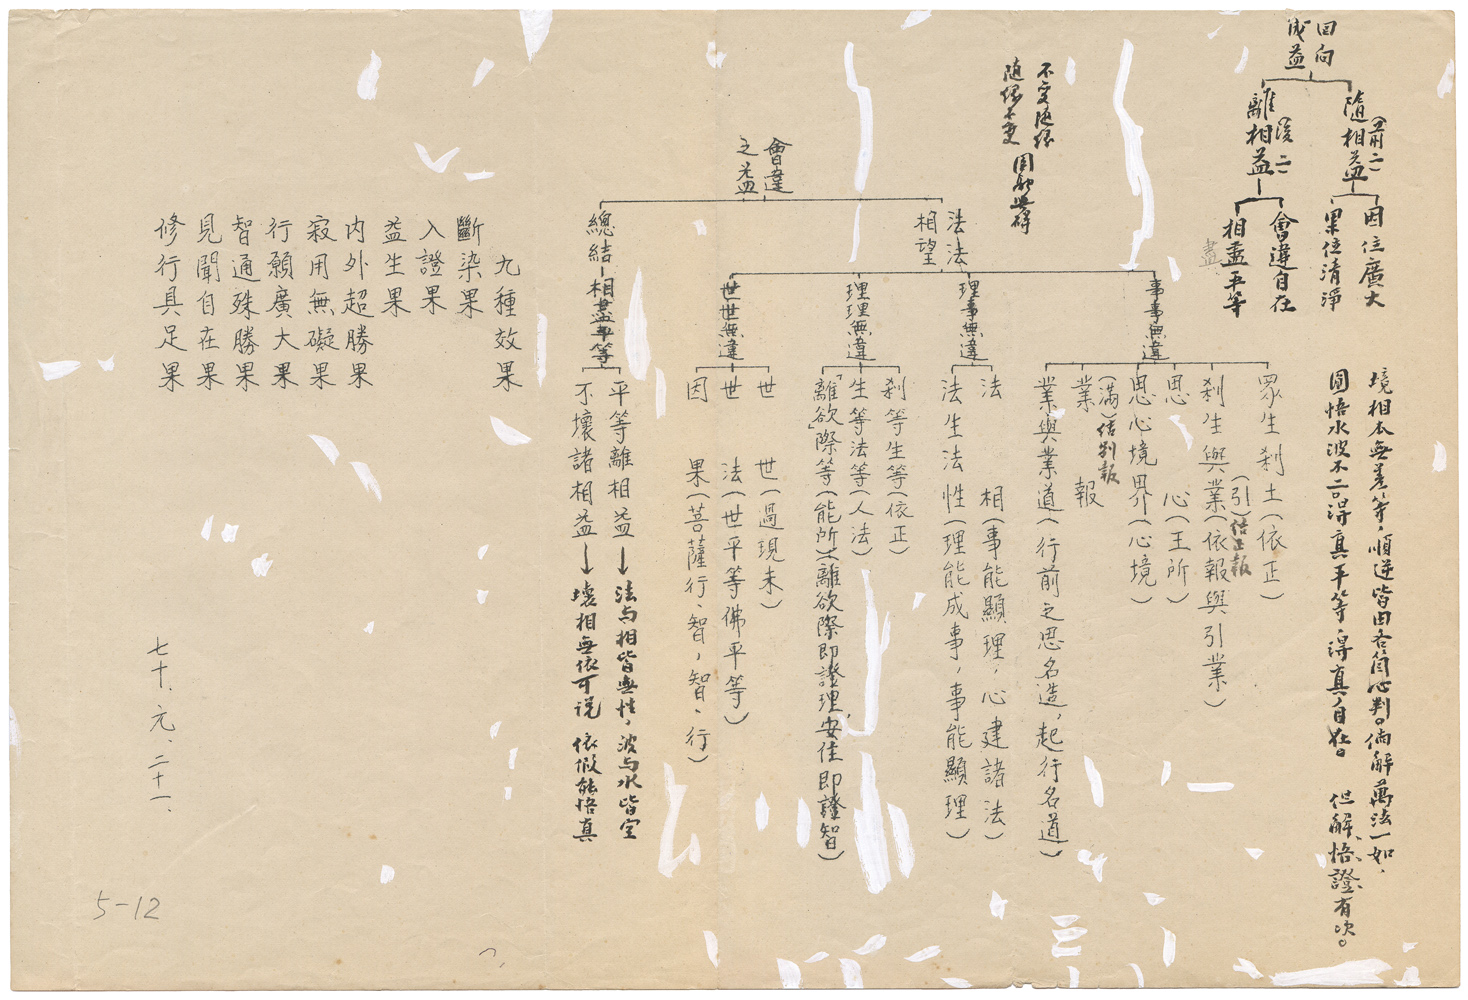 回向
成益
隨相益
(前二)
離相益
(後二)
因位廣大
果位清淨
會違自在
相盡平等
盡
境相本無差等，順逆皆由各自心判。倘解萬法一如，
圓悟水波不二。得真平等，得真自在。 但解、悟、證，有次。
不變隨緣
隨緣不變
因配無碍
會違
之益
法法
相望
事事無違
眾生剎土(依正)
(引)結正報
剎生與業(依報與引業)
思心(王所)
思心境界(心境)
(滿)結別報
業報
業與業道(行前之思名造，起行名道)
理事無違
法相(事能顯理，心建諸法)
法生法性(理能成事，事能顯理)
理理無違
剎等生等(依正)
生等法等(人法)
「離欲」際等(能所)(離欲際即證理，安住即證智)
世世無違
世世(過現未)
世法(世平等佛平等)
因果(菩薩行、智，智、行)
總結
相盡平等
平等離相益→法与相皆無性，波与水皆空
不壞諸相益→壞相無依可説 依假能悟真
九種效果
斷染果
入證果
益生果
內外超勝果
寂用無礙果
行願廣大果
智通殊勝果
見聞自在果
修行具足果
七十、元、二十一、
5-12